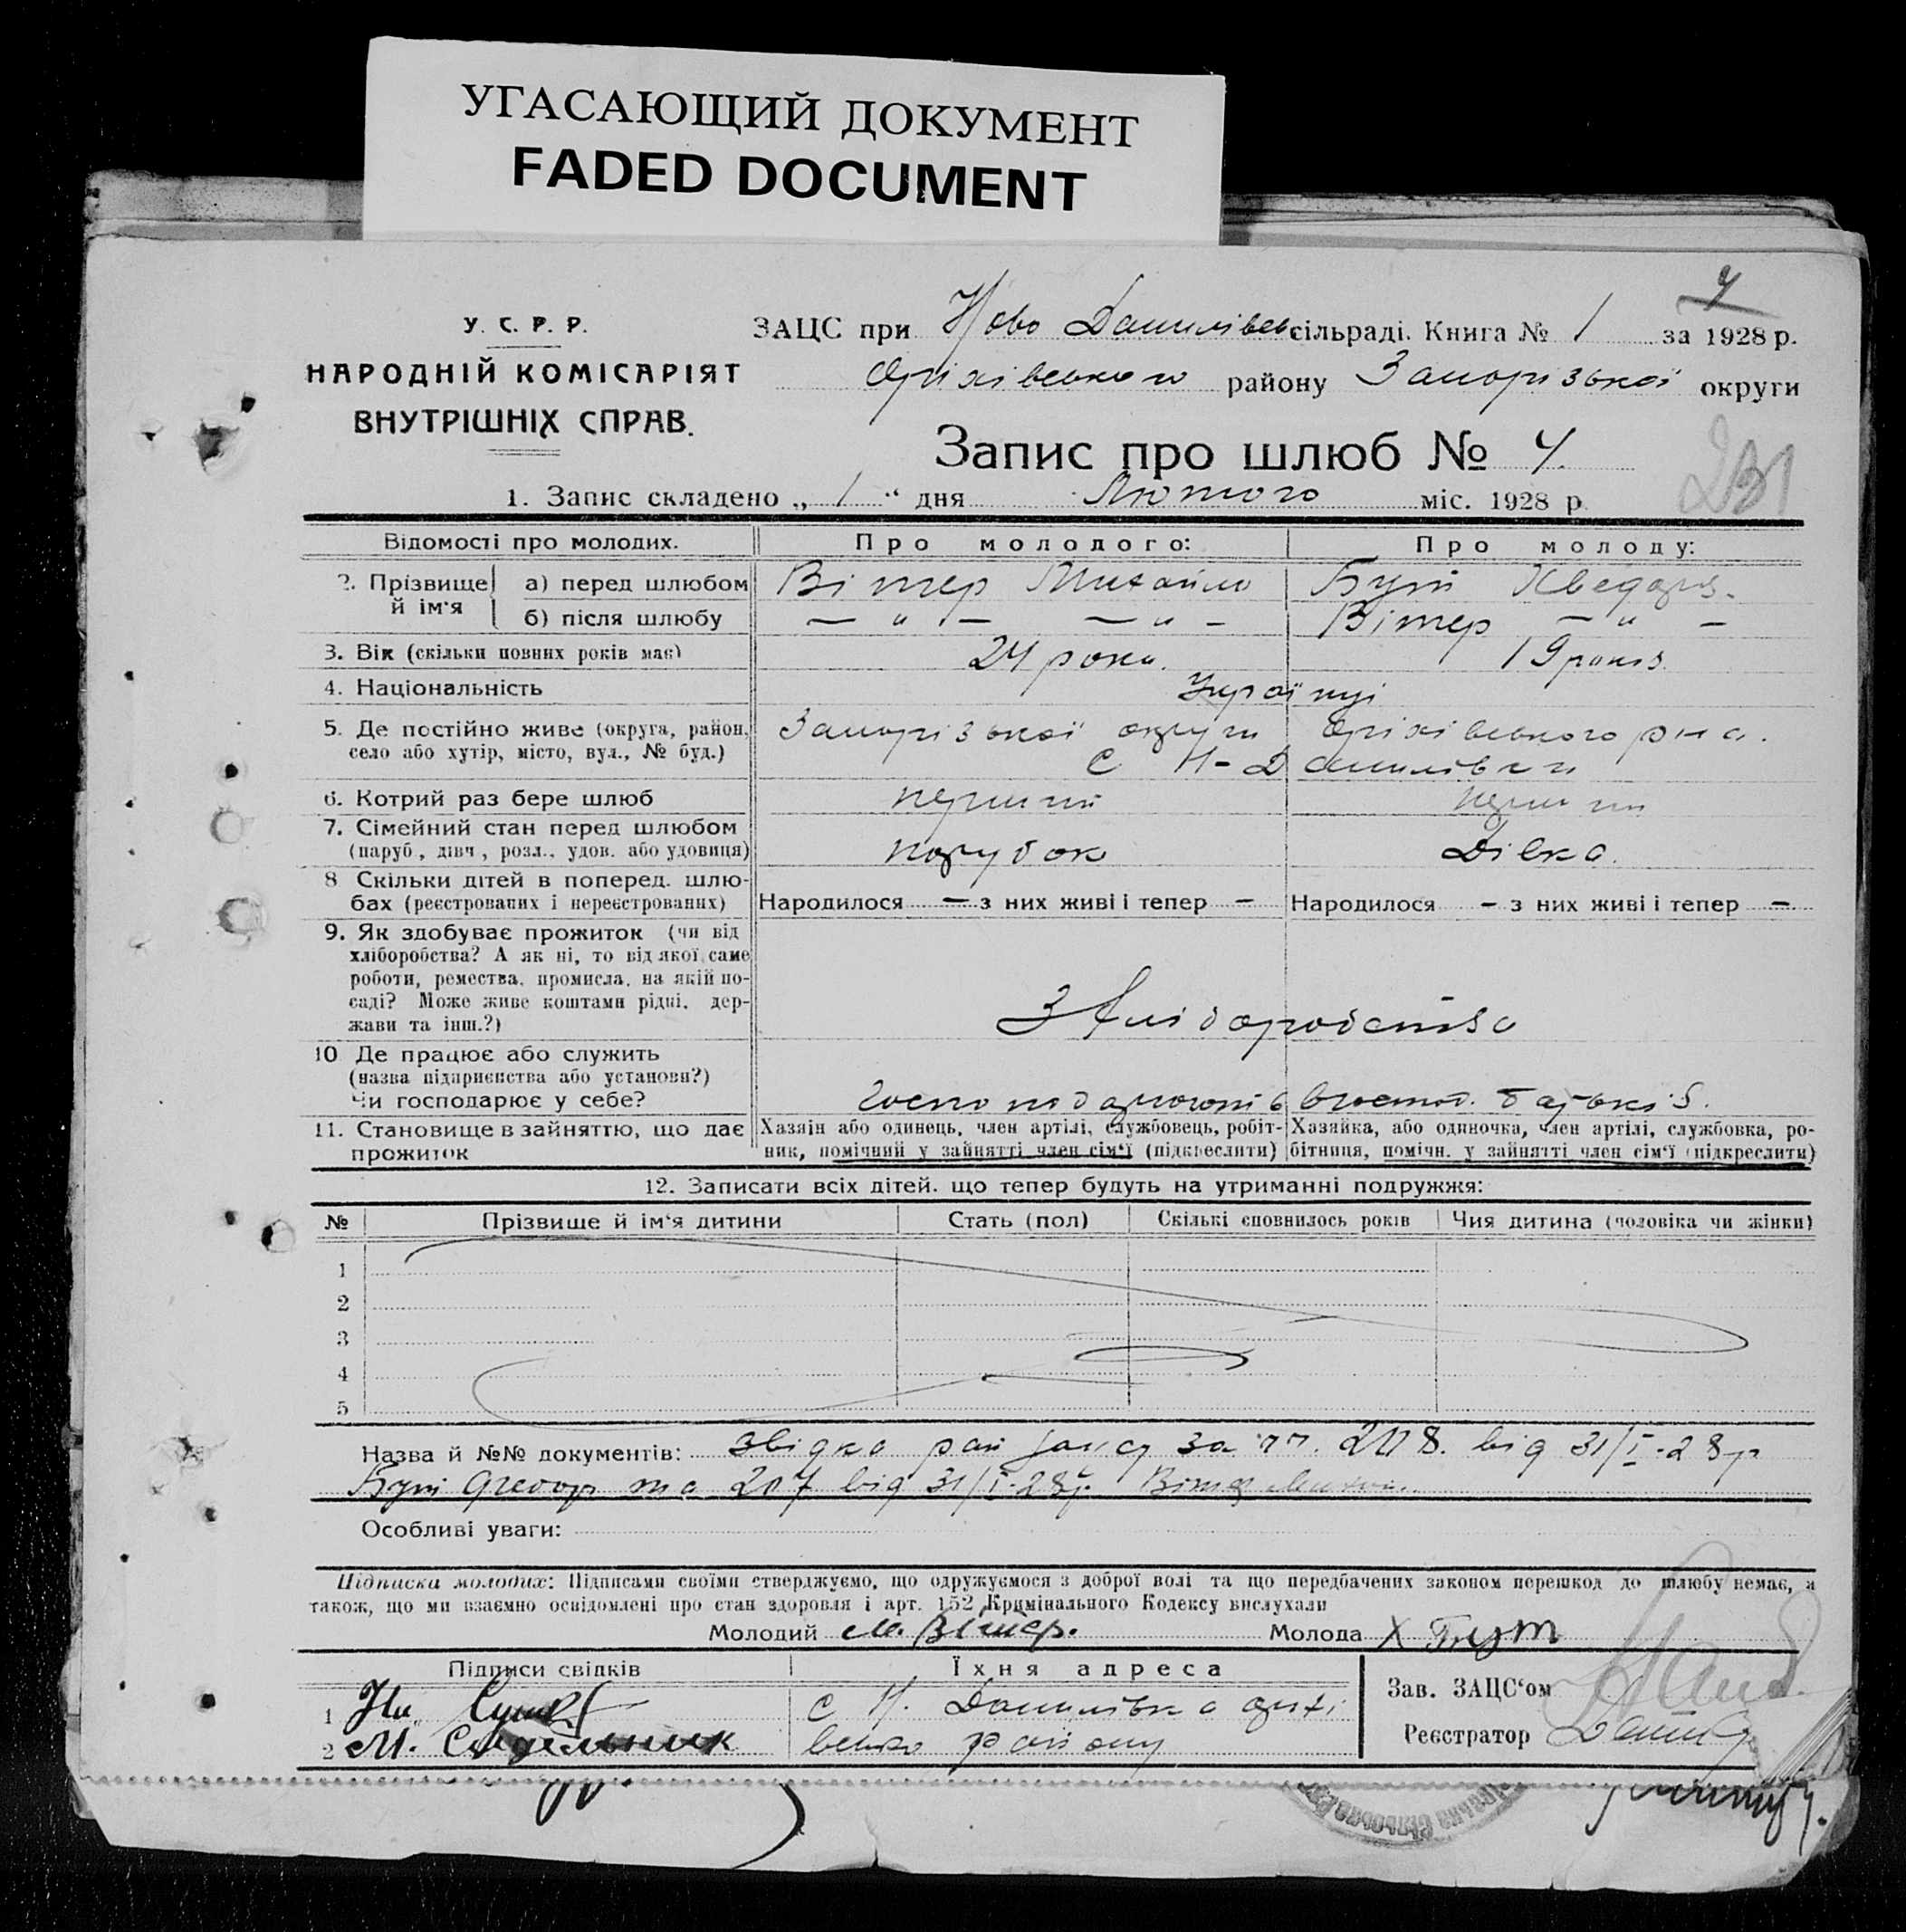 УГАСАЮЩИЙ ДОКУМЕНТ
FADED DOCUMENT
4
У. С. Р. Р.
НАРОДНІЙ КОМІСАРІЯТ
ВНУТРІШНІХ СПРАВ.
ЗАЦС при Ново Данилівськ сільраді. Книга № 1 за 1928 р.
Оріхівського району Запорізької округи
Запис про шлюб № 4.
231
1. Запис складено „ 1 “ дня Лютого міс. 1928 р.
Відомості про молодих. Про молодого: Про молоду:
2. Прізвище й ім'я а) перед шлюбом Вітер Михайло Бут Хведора.
б) після шлюбу — " — — " — Вітер — " —
3. Вік (скільки повних років має) 24 роки. 19 років.
4. Національність Українці
5. Де постійно живе (округа, район, Запорізької округи Оріхівського р-на.
село або хутір, місто, вул., № буд.) с Н-Данилівки
6. Котрий раз бере шлюб перший перший
7. Сімейний стан перед шлюбом
(паруб., дівч., розл., удов. або удовиця) парубок Дівка.
8 Скільки дітей в поперед. шлю-
бах (реєстрованих і нереєстрованих) Народилося — з них живі і тепер — Народилося — з них живі і тепер —
9. Як здобуває прожиток (чи від
хліборобства? А як ні, то від якої саме
роботи, ремества, промисла, на якій по-
саді? Може живе коштами рідні, дер- З хліборобства
жави та інш.?)
10 Де працює або служить
(назва підприємства або установи?)
Чи господарює у себе? в господ. батьків.
11. Становище в зайняттю, що дає Хазяін або одинець, член артілі, службовець, робіт- Хазяйка, або одиночка, член артілі, службовка, ро-
прожиток ник, помічний у зайнятті член сім'ї (підкреслити) бітниця, помічн. у зайнятті член сім'ї (підкреслити)
12. Записати всіх дітей, що тепер будуть на утриманні подружжя:
№ Прізвище й ім'я дитини Стать (пол) Скількі сповнилось років Чия дитина (чоловіка чи жінки)
1
2
3
4
5
Назва й №№ документів: звідка рай за 208. від 31/I-28р
Бут та 207 від 31/I-28р. Вітер
Особливі уваги:
Підписка молодих: Підписами своїми стверджуємо, що одружуємося з доброї волі та що передбачених законом перешкод до шлюбу немає, а
також, що ми взаємно освідомлені про стан здоровля і арт. 152 Кримінального Кодексу вислухали
Молодий М. Вітер. Молода Х Бут
Підписи свідків Їхня адреса
Зав. ЗАЦС'ом
1 с Н. Данилівка оріхі
Реєстратор
2 М. вського району